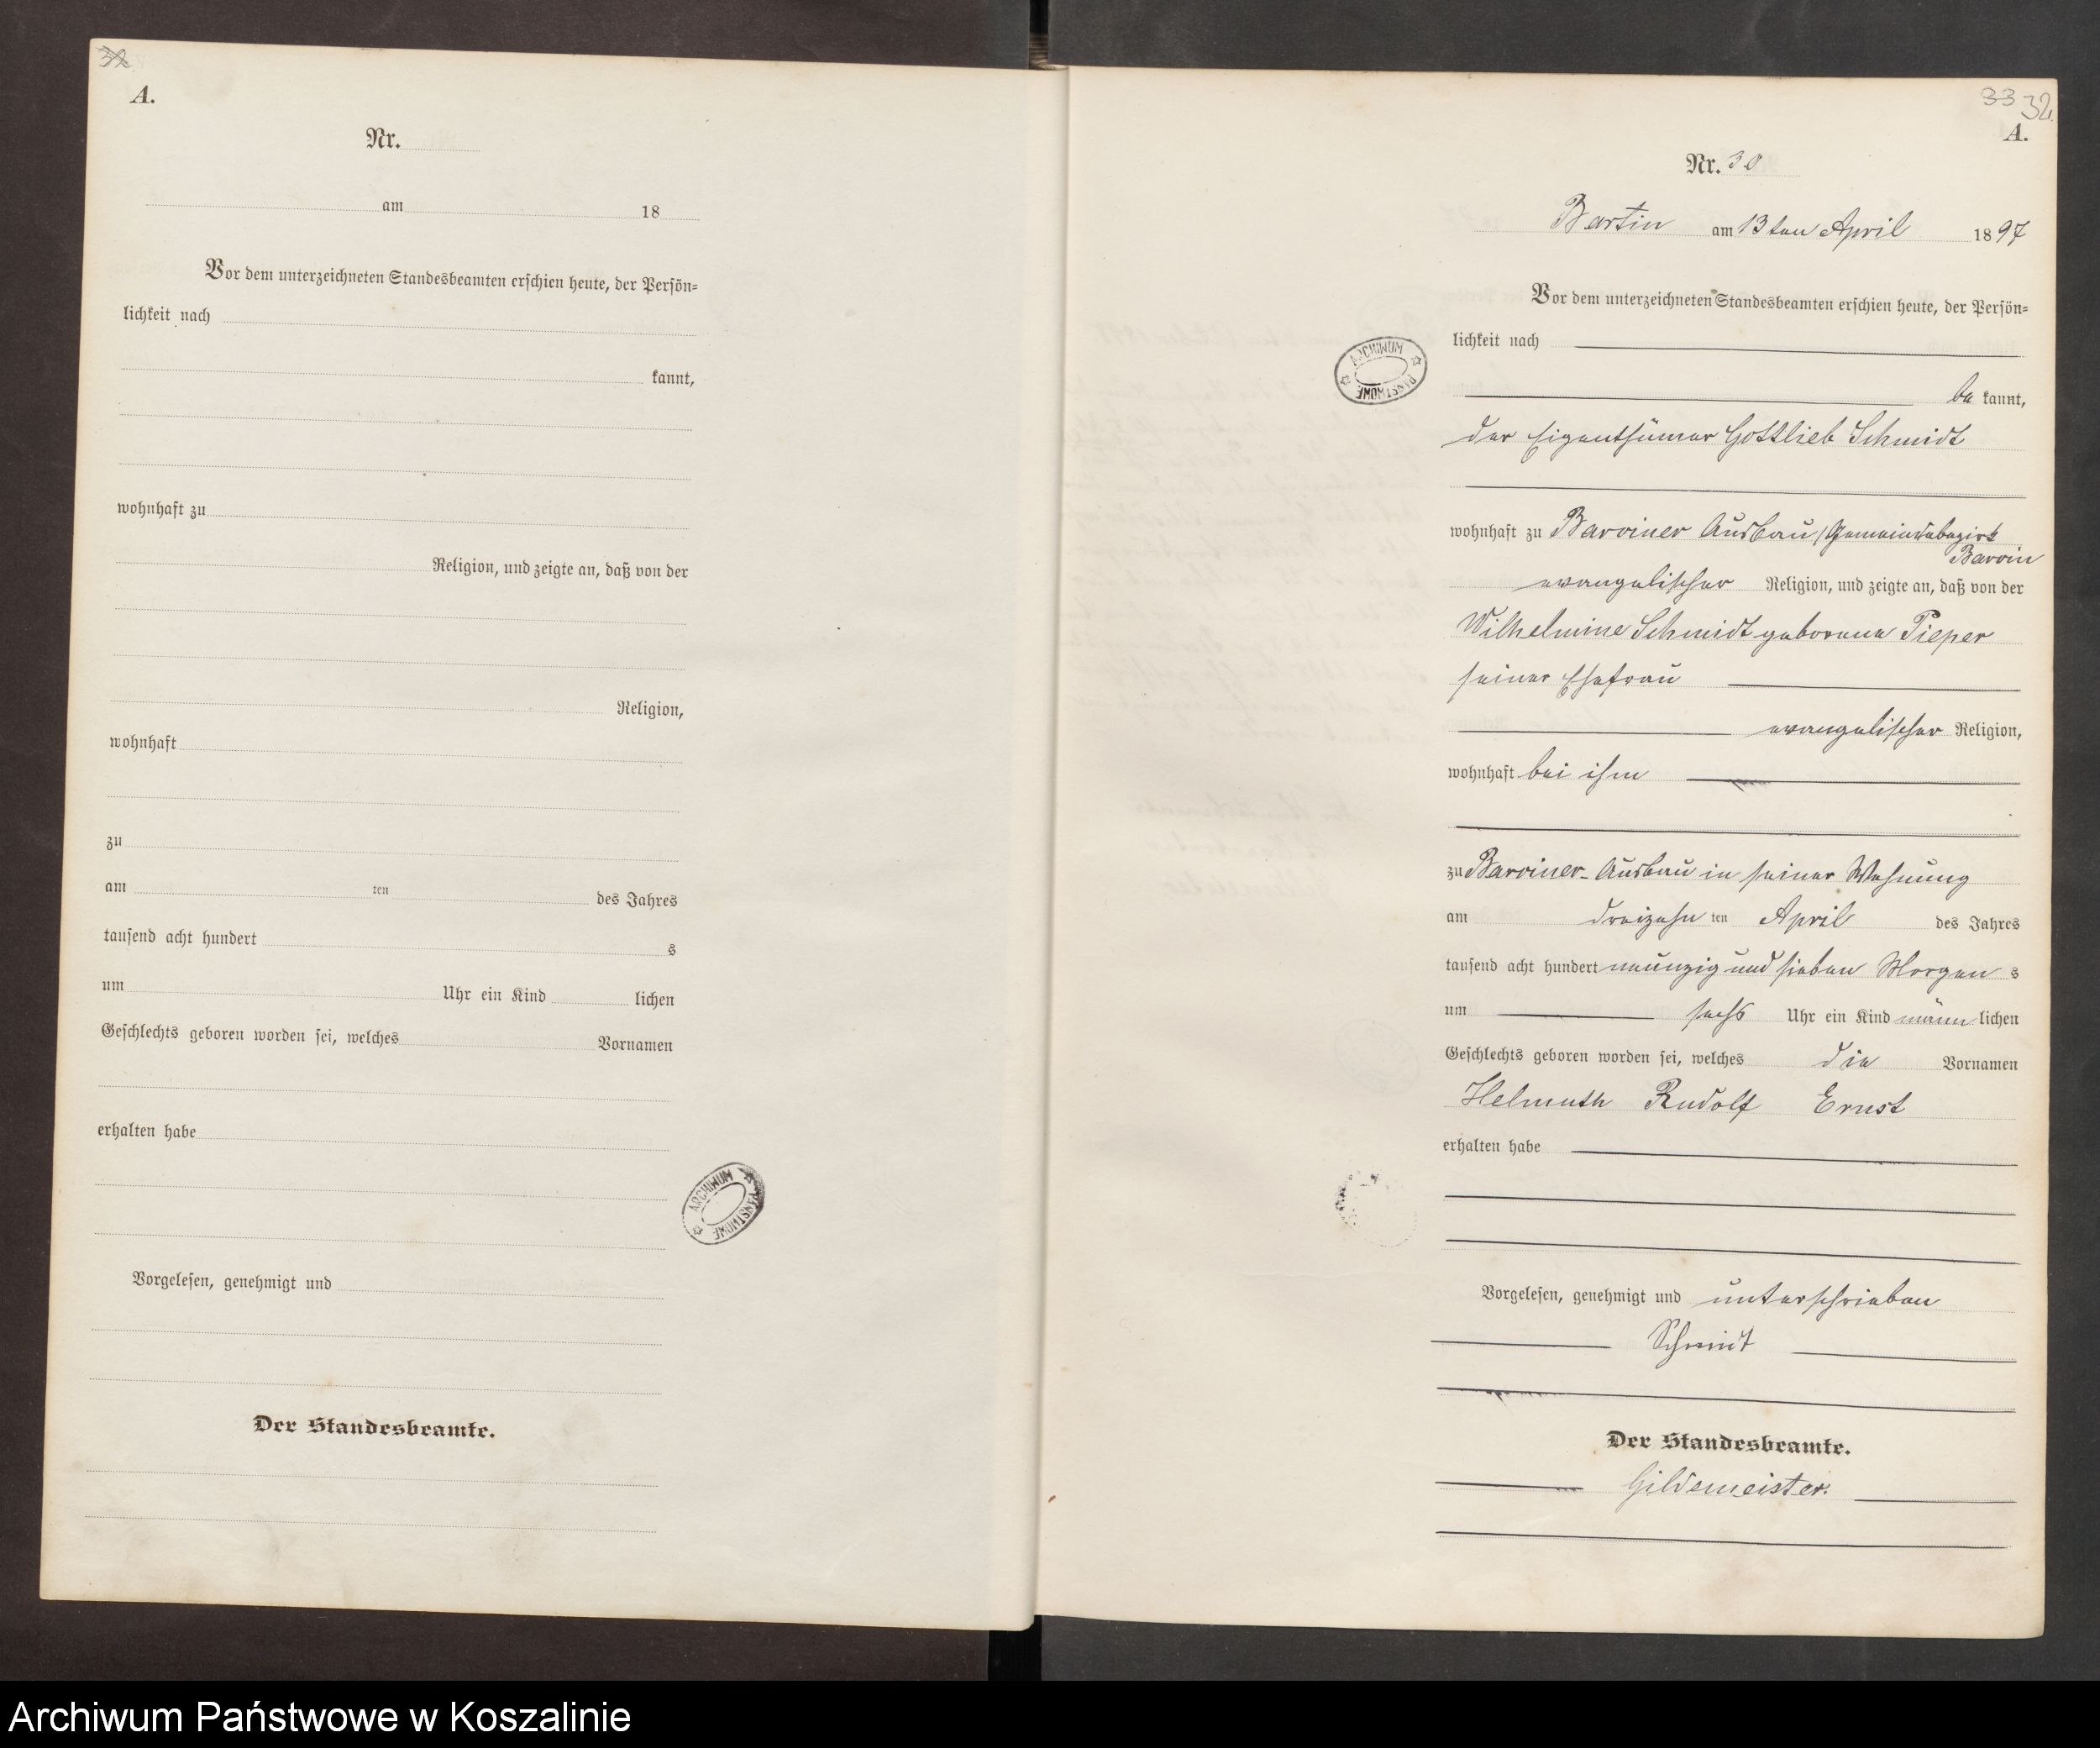 32
A.
Nr.
am 18
Vor dem unterzeichneten Standesbeamten erschien heute, der Persön=
lichkeit nach
kannt,
wohnhaft zu
Religion, und zeigte an, daß von der
Religion,
wohnhaft
zu
am ten des Jahres
tausend acht hundert s
um Uhr ein Kind lichen
Geschlechts geboren worden sei, welches Vornamen
erhalten habe
Vorgelesen, genehmigt und
Der Standesbeamte.
ARCHIWUM PAŃSTWOWE
33 32
A.
Nr. 30
Bartin am 13ten April 1897
Vor dem unterzeichneten Standesbeamten erschien heute, der Persön=
lichkeit nach
ARCHIWUM PAŃSTWOWE
be kannt,
der Eigenthümer Gottlieb Schmidt
wohnhaft zu Barviner Ausbau/Gemeindebezirk
Barvin
evangelischer Religion, und zeigte an, daß von der
Wilhelmine Schmidt geborene Pieper
seiner Ehefrau
evangelischer Religion,
wohnhaft bei ihm
zu Barviner-Ausbau in seiner Wohnung
am dreizehn ten April des Jahres
tausend acht hundert neunzig und sieben Morgen s
um sechs Uhr ein Kind männ lichen
Geschlechts geboren worden sei, welches die Vornamen
Helmuth Rudolf Ernst
erhalten habe
Vorgelesen, genehmigt und unterschrieben
Schmidt
Der Standesbeamte.
Gildemeister.
Archiwum Państwowe w Koszalinie